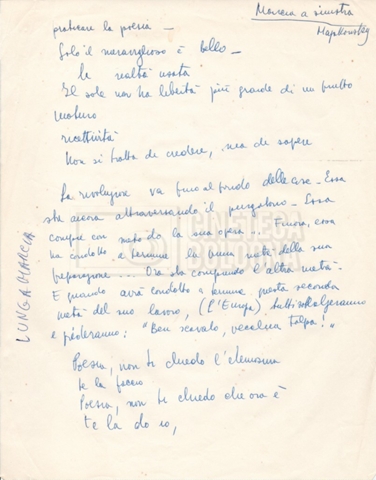 Marcia a sinistra
Majakowskij
praticare la poesia –
Solo il meraviglioso è bello –
la realtà usata
Il sole non ha libertà più grande di un frutto
maturo
recettività
Non si tratta di credere, ma di sapere
La rivoluzione va fino al fondo delle cose – Essa
sta ancora attraversando il purgatorio – Essa
compie con metodo la sua opera... Finora, essa
ha condotto a termine la prima metà della sua
preparazione. Ora sta compiendo l'altra metà.
E quando avrà condotto a termine questa seconda
metà del suo lavoro, (l'Europa), tutti
e grideranno: "Ben scavato, vecchia talpa!"
LUNGA MARCIA
CINETECA
BOLOGNA
Poesia, non ti chiedo l'elemosina
te la faccio
Poesia, non ti chiedo che ora è
te la do io,